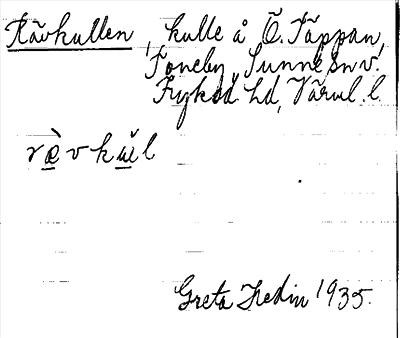 Rävkullen, kulle å Ö. Täppan,
Toneby, Sunne sn v.
Fryksd. hd, Värml. l.
r æ̀ v k ɯ̆ l
Greta Hedin 1935.